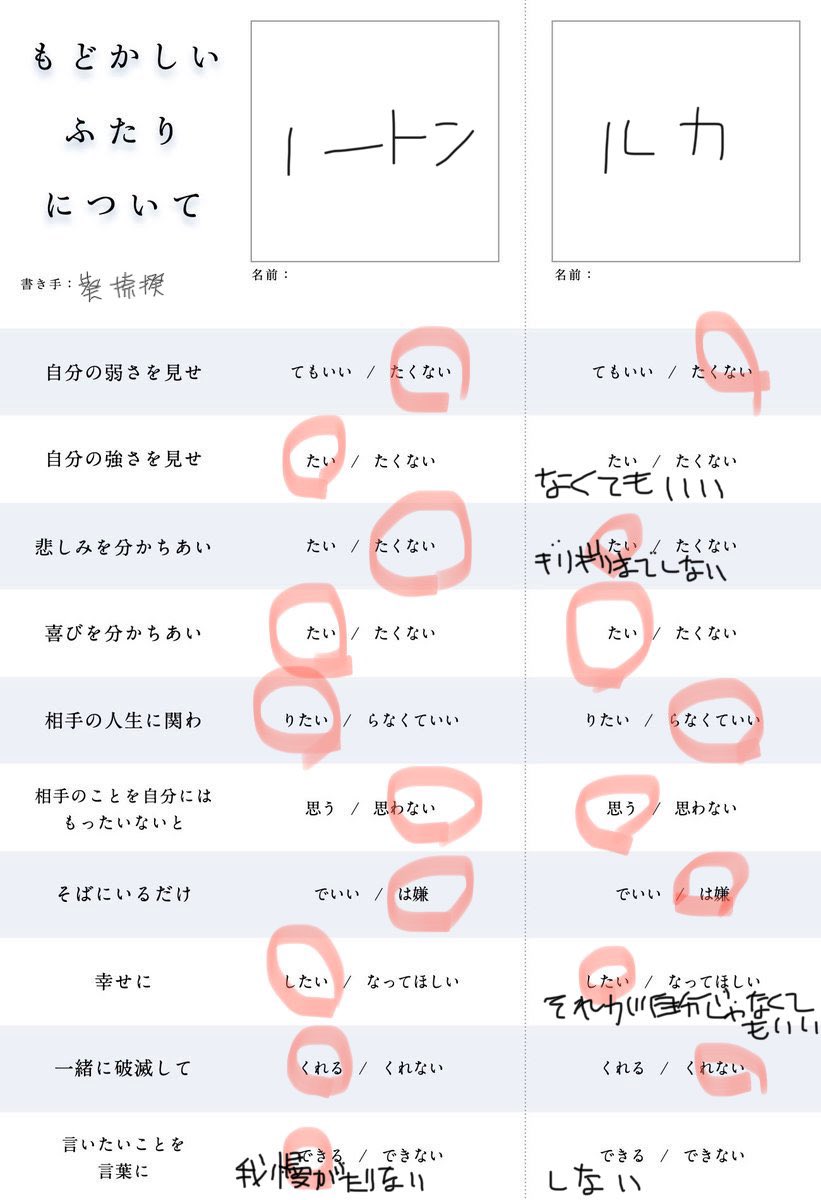 もどかしい
ふたり
について
ノートン
ルカ
書き手：
名前：
名前：
自分の弱さを見せ てもいい / たくない てもいい / たくない
自分の強さを見せ たい / たくない たい / たくない
なくてもいい
悲しみを分かちあい たい / たくない たい / たくない
ギリギリまでしない
喜びを分かちあい たい / たくない たい / たくない
相手の人生に関わ りたい / らなくていい りたい / らなくていい
相手のことを自分には
もったいないと 思う / 思わない 思う / 思わない
そばにいるだけ でいい / は嫌 でいい / は嫌
幸せに したい / なってほしい したい / なってほしい
それが自分じゃなくて
もいい
一緒に破滅して くれる / くれない くれる / くれない
言いたいことを
言葉に できる / できない できる / できない
我慢がたりない
しない